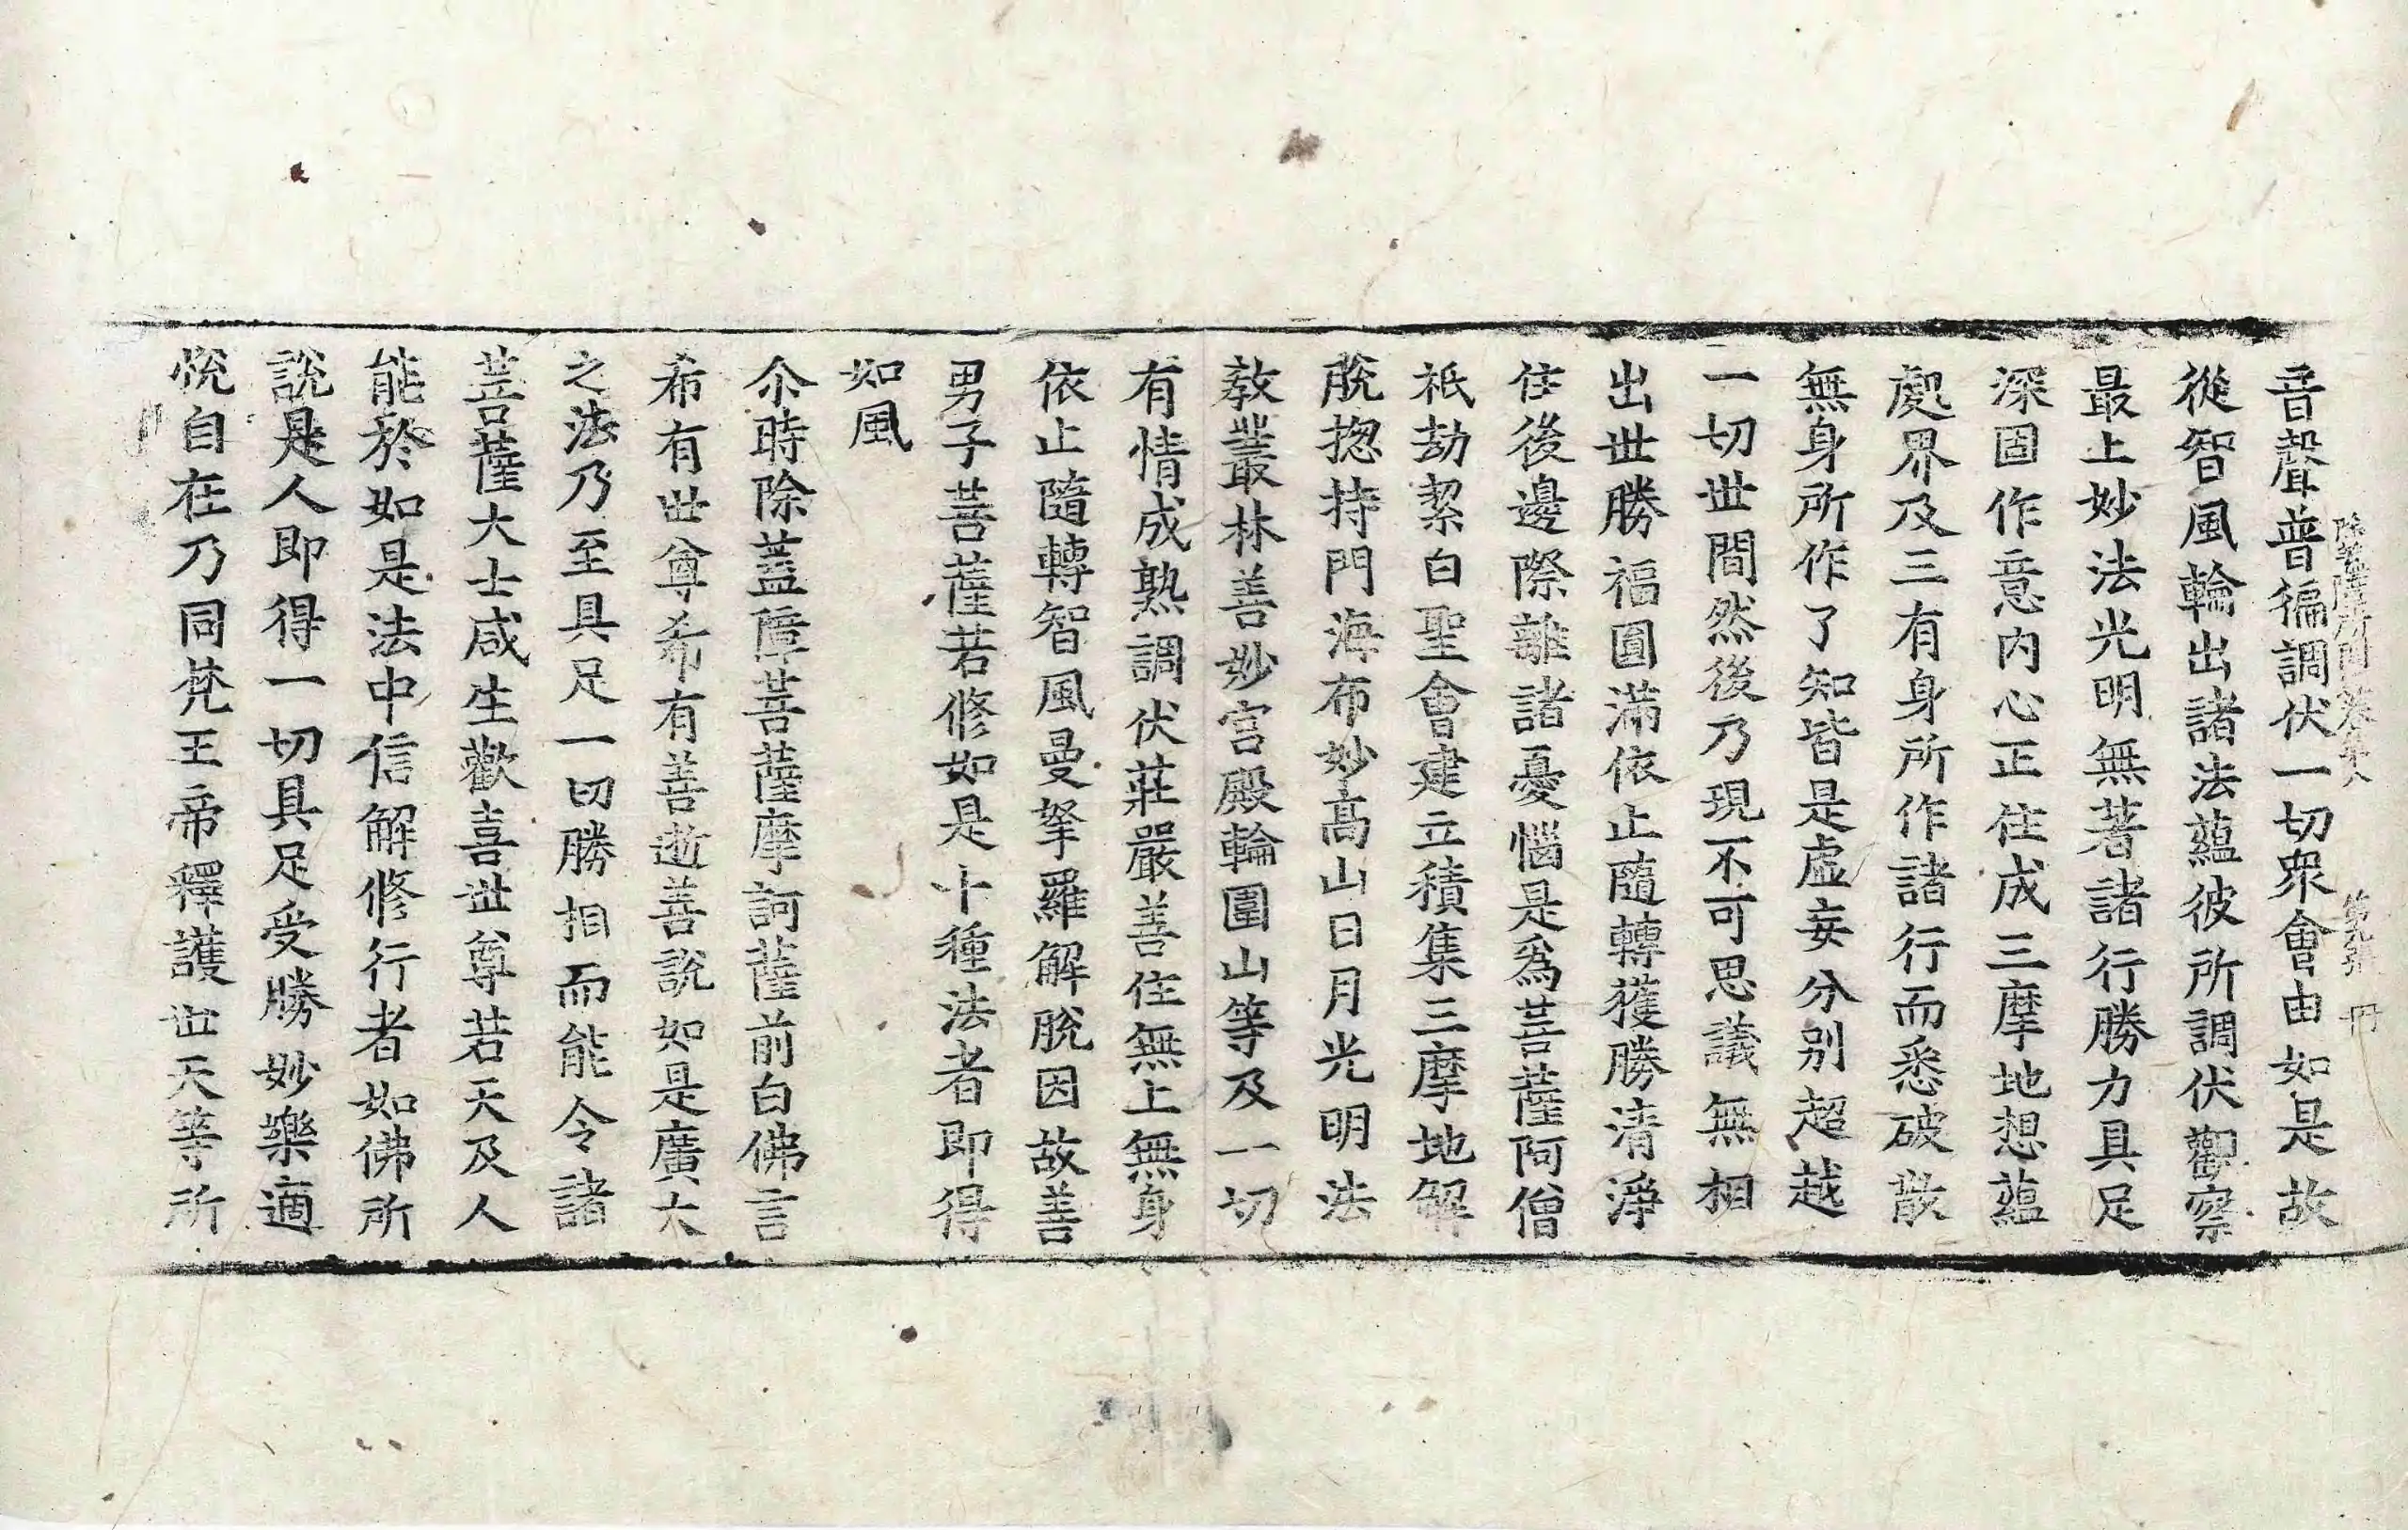 音聲普徧調伏一切衆會由如是故
從智風輪出諸法蘊彼所調伏觀察
最上妙法光明無著諸行勝力具足
深固作意內心正住成三摩地想蘊
處界及三有身所作諸行而悉破散
無身所作了知皆是虛妄分別超越
一切世間然後乃現不可思議無相
出世勝福圓滿依止隨轉獲勝清淨
住後邊際離諸憂惱是爲菩薩阿僧
祇劫絜白聖會建立積集三摩地解
脫揔持門海布妙高山日月光明法
教叢林善妙宮殿輪圍山等及一切
有情成熟調伏莊嚴善住無上無身
依止隨轉智風曼拏羅解脫因故善
男子菩薩若修如是十種法者即得
如風
尒時除蓋障菩薩摩訶薩前白佛言
希有世尊希有善逝善說如是廣大
之法乃至具足一切勝相而能令諸
菩薩大士咸生歡喜世尊若天及人
能於如是法中信解修行者如佛所
說是人即得一切具足受勝妙樂適
悅自在乃同梵王帝釋護世天等所